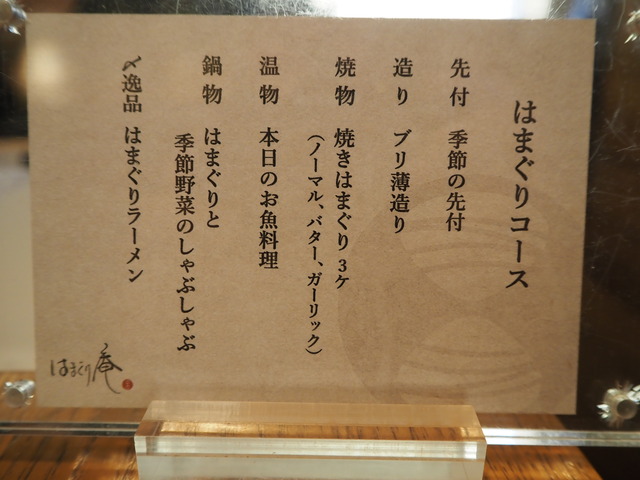 はまぐりコース
先付 季節の先付
造り ブリ薄造り
焼物 焼きはまぐり3ケ
（ノーマル、バター、ガーリック）
温物 本日のお魚料理
鍋物 はまぐりと
季節野菜のしゃぶしゃぶ
〆逸品 はまぐりラーメン
はまぐり庵